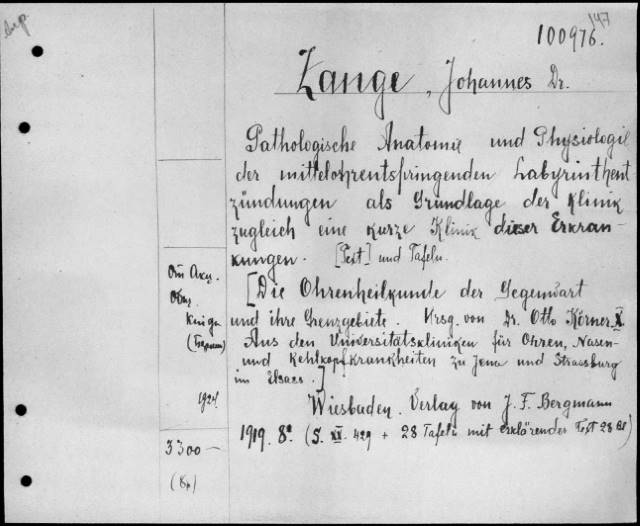 147
100976.
Zange, Johannes Dr.
Pathologische Anatomie und Physiologie
der mittelohrentspringenden Labyrinthent
zündungen als Grundlage der Klinik
zugleich eine kurze Klinik dieser Erkran-
kungen. [Text] und Tafeln.
[Die Ohrenheilkunde der Gegenwart
und ihre Grenzgebiete. Hrsg. von Dr. Otto Körner. X.
Aus den Universitätskliniken für Ohren, Nasen-
und Kehlkopfkrankheiten zu Jena und Strassburg
im Elsass.]
Wiesbaden. Verlag von J. F. Bergmann
1919. 8° (S. XV. 429 + 28 Tafeln mit erklärender Text 28 Bl)
От Акц.
Общ.
Книга
(Берлин)
1924.
3300 —